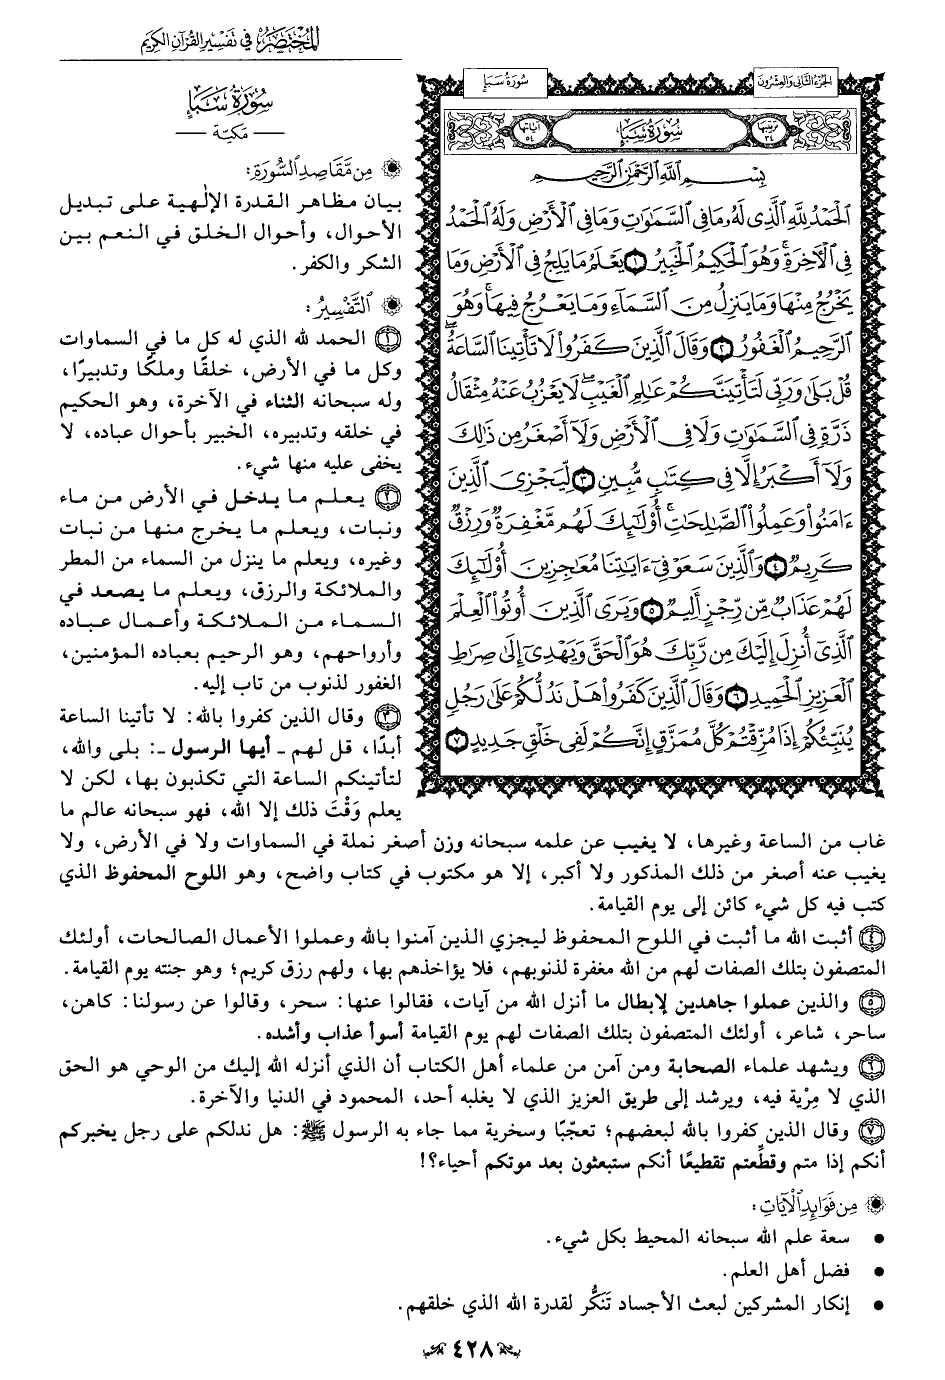 المختصر في تفسير القرآن الكريم
الجزء الثاني والعشرون
سورة سبإ
ترتيبها ٣٤
سُورَةُ سَبَإٍ
آياتها ٥٤
بِسْمِ ٱللَّهِ ٱلرَّحْمَٰنِ ٱلرَّحِيمِ
ٱلْحَمْدُ لِلَّهِ ٱلَّذِى لَهُۥ مَا فِى ٱلسَّمَٰوَٰتِ وَمَا فِى ٱلْأَرْضِ وَلَهُ ٱلْحَمْدُ
فِى ٱلْءَاخِرَةِ ۚ وَهُوَ ٱلْحَكِيمُ ٱلْخَبِيرُ ١ يَعْلَمُ مَا يَلِجُ فِى ٱلْأَرْضِ وَمَا
يَخْرُجُ مِنْهَا وَمَا يَنزِلُ مِنَ ٱلسَّمَآءِ وَمَا يَعْرُجُ فِيهَا ۚ وَهُوَ
ٱلرَّحِيمُ ٱلْغَفُورُ ٢ وَقَالَ ٱلَّذِينَ كَفَرُوا۟ لَا تَأْتِينَا ٱلسَّاعَةُ ۖ
قُلْ بَلَىٰ وَرَبِّى لَتَأْتِيَنَّكُمْ عَٰلِمِ ٱلْغَيْبِ ۖ لَا يَعْزُبُ عَنْهُ مِثْقَالُ
ذَرَّةٍ فِى ٱلسَّمَٰوَٰتِ وَلَا فِى ٱلْأَرْضِ وَلَآ أَصْغَرُ مِن ذَٰلِكَ
وَلَآ أَكْبَرُ إِلَّا فِى كِتَٰبٍ مُّبِينٍ ٣ لِّيَجْزِىَ ٱلَّذِينَ
ءَامَنُوا۟ وَعَمِلُوا۟ ٱلصَّٰلِحَٰتِ ۚ أُو۟لَٰٓئِكَ لَهُم مَّغْفِرَةٌ وَرِزْقٌ
كَرِيمٌ ٤ وَٱلَّذِينَ سَعَوْ فِىٓ ءَايَٰتِنَا مُعَٰجِزِينَ أُو۟لَٰٓئِكَ
لَهُمْ عَذَابٌ مِّن رِّجْزٍ أَلِيمٌ ٥ وَيَرَى ٱلَّذِينَ أُوتُوا۟ ٱلْعِلْمَ
ٱلَّذِىٓ أُنزِلَ إِلَيْكَ مِن رَّبِّكَ هُوَ ٱلْحَقَّ وَيَهْدِىٓ إِلَىٰ صِرَٰطِ
ٱلْعَزِيزِ ٱلْحَمِيدِ ٦ وَقَالَ ٱلَّذِينَ كَفَرُوا۟ هَلْ نَدُلُّكُمْ عَلَىٰ رَجُلٍ
يُنَبِّئُكُمْ إِذَا مُزِّقْتُمْ كُلَّ مُمَزَّقٍ إِنَّكُمْ لَفِى خَلْقٍ جَدِيدٍ ٧
سُورَةُ سَبَإٍ
— مكية —
من مقاصد السورة:
بيان مظاهر القدرة الإلٰهية على تبديل
الأحوال، وأحوال الخلق في النعم بين
الشكر والكفر.
التفسير:
١ الحمد لله الذي له كل ما في السماوات
وكل ما في الأرض، خلقًا وملكًا وتدبيرًا،
وله سبحانه الثناء في الآخرة، وهو الحكيم
في خلقه وتدبيره، الخبير بأحوال عباده، لا
يخفى عليه منها شيء.
٢ يعلم ما يدخل في الأرض من ماء
ونبات، ويعلم ما يخرج منها من نبات
وغيره، ويعلم ما ينزل من السماء من المطر
والملائكة والرزق، ويعلم ما يصعد في
السماء من الملائكة وأعمال عباده
وأرواحهم، وهو الرحيم بعباده المؤمنين،
الغفور لذنوب من تاب إليه.
٣ وقال الذين كفروا بالله: لا تأتينا الساعة
أبدًا، قل لهم - أيها الرسول -: بلى والله،
لتأتينكم الساعة التي تكذبون بها، لكن لا
يعلم وَقْتَ ذلك إلا الله، فهو سبحانه عالم ما
غاب من الساعة وغيرها، لا يغيب عن علمه سبحانه وزن أصغر نملة في السماوات ولا في الأرض، ولا
يغيب عنه أصغر من ذلك المذكور ولا أكبر، إلا هو مكتوب في كتاب واضح، وهو اللوح المحفوظ الذي
كتب فيه كل شيء كائن إلى يوم القيامة.
٤ أثبت الله ما أثبت في اللوح المحفوظ ليجزي الذين آمنوا بالله وعملوا الأعمال الصالحات، أولئك
المتصفون بتلك الصفات لهم من الله مغفرة لذنوبهم، فلا يؤاخذهم بها، ولهم رزق كريم؛ وهو جنته يوم القيامة.
٥ والذين عملوا جاهدين لإبطال ما أنزل الله من آيات، فقالوا عنها: سحر، وقالوا عن رسولنا: كاهن،
ساحر، شاعر، أولئك المتصفون بتلك الصفات لهم يوم القيامة أسوأ عذاب وأشده.
٦ ويشهد علماء الصحابة ومن آمن من علماء أهل الكتاب أن الذي أنزله الله إليك من الوحي هو الحق
الذي لا مِرْية فيه، ويرشد إلى طريق العزيز الذي لا يغلبه أحد، المحمود في الدنيا والآخرة.
٧ وقال الذين كفروا بالله لبعضهم؛ تعجّبًا وسخرية مما جاء به الرسول ﷺ: هل ندلكم على رجل يخبركم
أنكم إذا متم وقطّعتم تقطيعًا أنكم ستبعثون بعد موتكم أحياء؟!
من فوائد الآيات:
• سعة علم الله سبحانه المحيط بكل شيء.
• فضل أهل العلم.
• إنكار المشركين لبعث الأجساد تَنَكُّر لقدرة الله الذي خلقهم.
٤٢٨